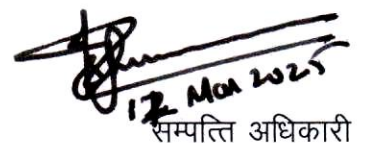 Mar 2025
सम्पत्ति अधिकारी